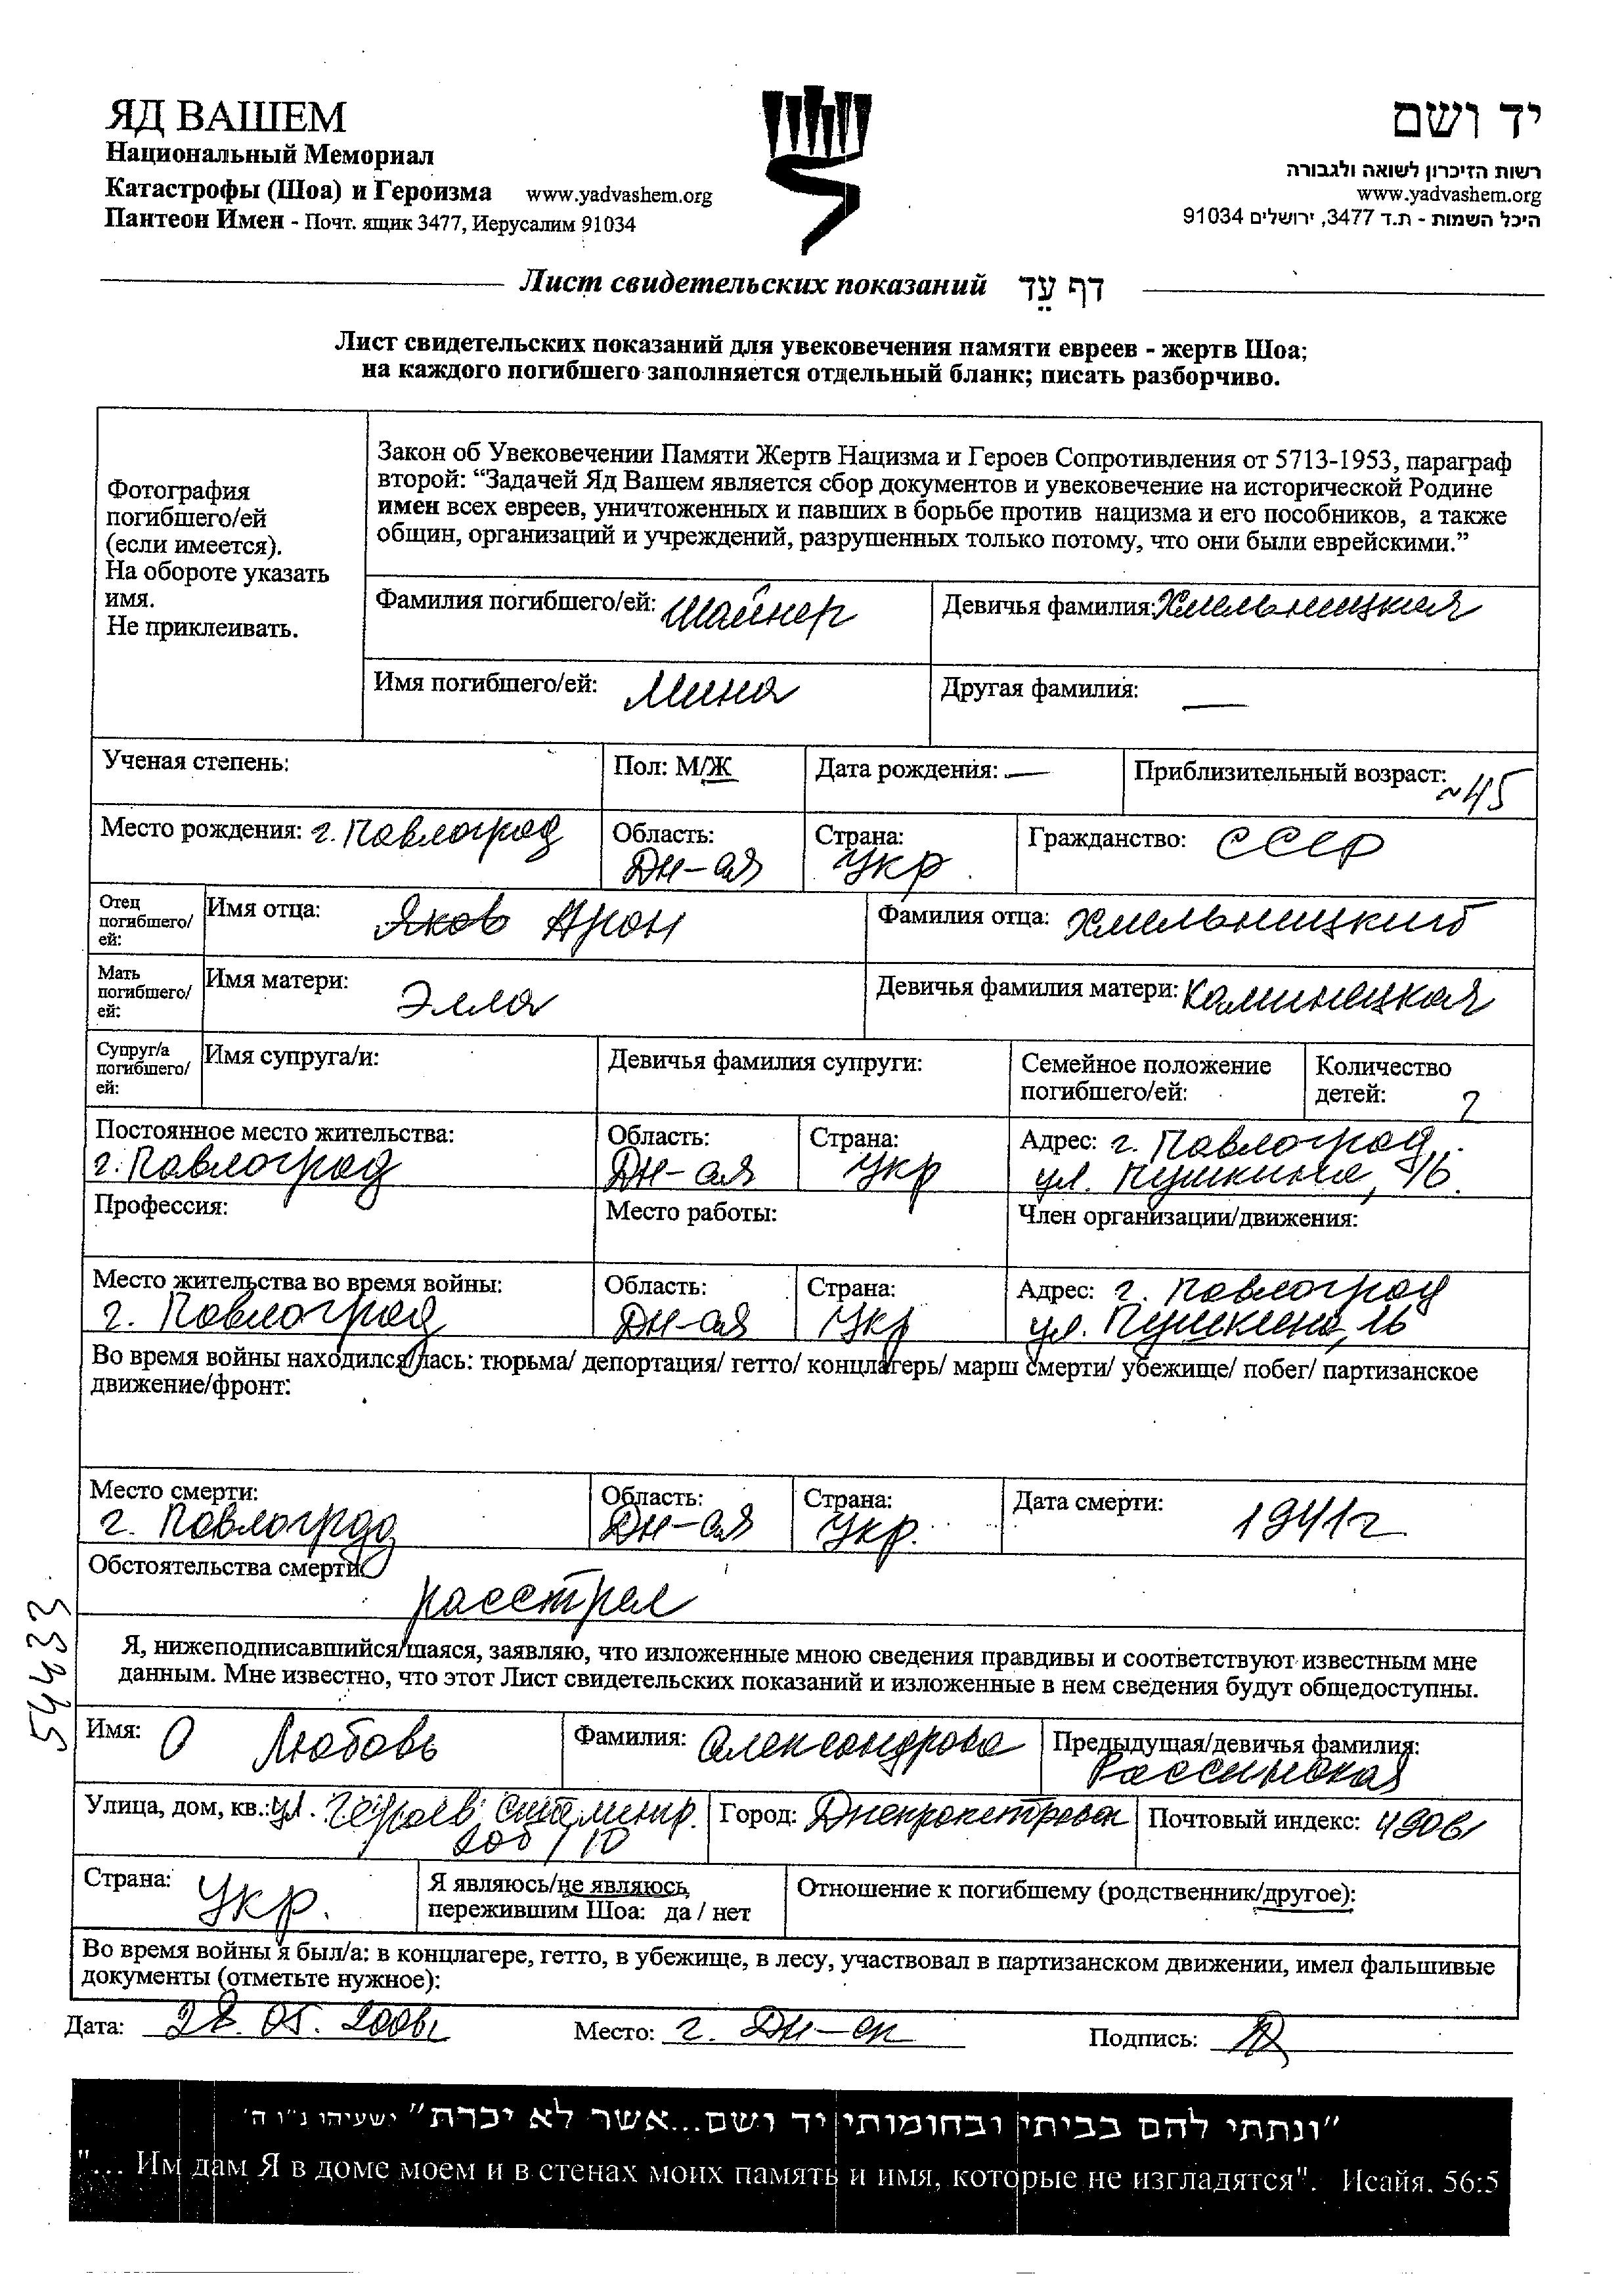 ЯД ВАШЕМ
Национальный Мемориал
Катастрофы (Шоа) и Героизма www.yadvashem.org
Пантеон Имен - Почт. ящик 3477, Иерусалим 91034
יד ושם
רשות הזיכרון לשואה ולגבורה
www.yadvashem.org
היכל השמות - ת.ד 3477, ירושלים 91034
Лист свидетельских показаний דף עֵד
Лист свидетельских показаний для увековечения памяти евреев - жертв Шоа;
на каждого погибшего заполняется отдельный бланк; писать разборчиво.
Фотография
погибшего/ей
(если имеется).
На обороте указать
имя.
Не приклеивать.
Закон об Увековечении Памяти Жертв Нацизма и Героев Сопротивления от 5713-1953, параграф
второй: “Задачей Яд Вашем является сбор документов и увековечение на исторической Родине
имен всех евреев, уничтоженных и павших в борьбе против нацизма и его пособников, а также
общин, организаций и учреждений, разрушенных только потому, что они были еврейскими.”
Фамилия погибшего/ей: Шайнер
Девичья фамилия: Хмельницкая
Имя погибшего/ей: Мина
Другая фамилия: —
Ученая степень:
Пол: М/Ж
Дата рождения: —
Приблизительный возраст: ~45
Место рождения: г. Павлоград
Область: Дн-ая
Страна: Укр.
Гражданство: СССР
Отец
погибшего/
ей:
Имя отца: Яков Арон
Фамилия отца: Хмельницкий
Мать
погибшего/
ей:
Имя матери: Элла
Девичья фамилия матери: Каминецкая
Супруг/а
погибшего/
ей:
Имя супруга/и:
Девичья фамилия супруги:
Семейное положение
погибшего/ей:
Количество
детей: 2
Постоянное место жительства:
г. Павлоград
Область:
Дн-ая
Страна:
Укр
Адрес: г. Павлоград
ул. Пушкина, 16.
Профессия:
Место работы:
Член организации/движения:
Место жительства во время войны:
г. Павлоград
Область:
Дн-ая
Страна:
Укр
Адрес: г. Павлоград
ул. Пушкина, 16
Во время войны находился/лась: тюрьма/ депортация/ гетто/ концлагерь/ марш смерти/ убежище/ побег/ партизанское
движение/фронт:
Место смерти:
г. Павлоград
Область:
Дн-ая
Страна:
Укр.
Дата смерти: 1941г
Обстоятельства смерти:
расстрел
54433
Я, нижеподписавшийся/шаяся, заявляю, что изложенные мною сведения правдивы и соответствуют известным мне
данным. Мне известно, что этот Лист свидетельских показаний и изложенные в нем сведения будут общедоступны.
Имя: Любовь
Фамилия: Александрова
Предыдущая/девичья фамилия:
Рассинская
Улица, дом, кв.: ул. Героев Сталингр.
Город: Днепропетровск
Почтовый индекс:
Страна: Укр.
Я являюсь/не являюсь
пережившим Шоа: да / нет
Отношение к погибшему (родственник/другое):
Во время войны я был/а: в концлагере, гетто, в убежище, в лесу, участвовал в партизанском движении, имел фальшивые
документы (отметьте нужное):
Дата: 28.05.2006г
Место: г. Дн-ск
Подпись:
"ונתתי להם בביתי ובחומותי יד ושם...אשר לא יכרת" ישעיהו נ"ו ה'
"... Им дам Я в доме моем и в стенах моих память и имя, которые не изгладятся". Исайя. 56:5